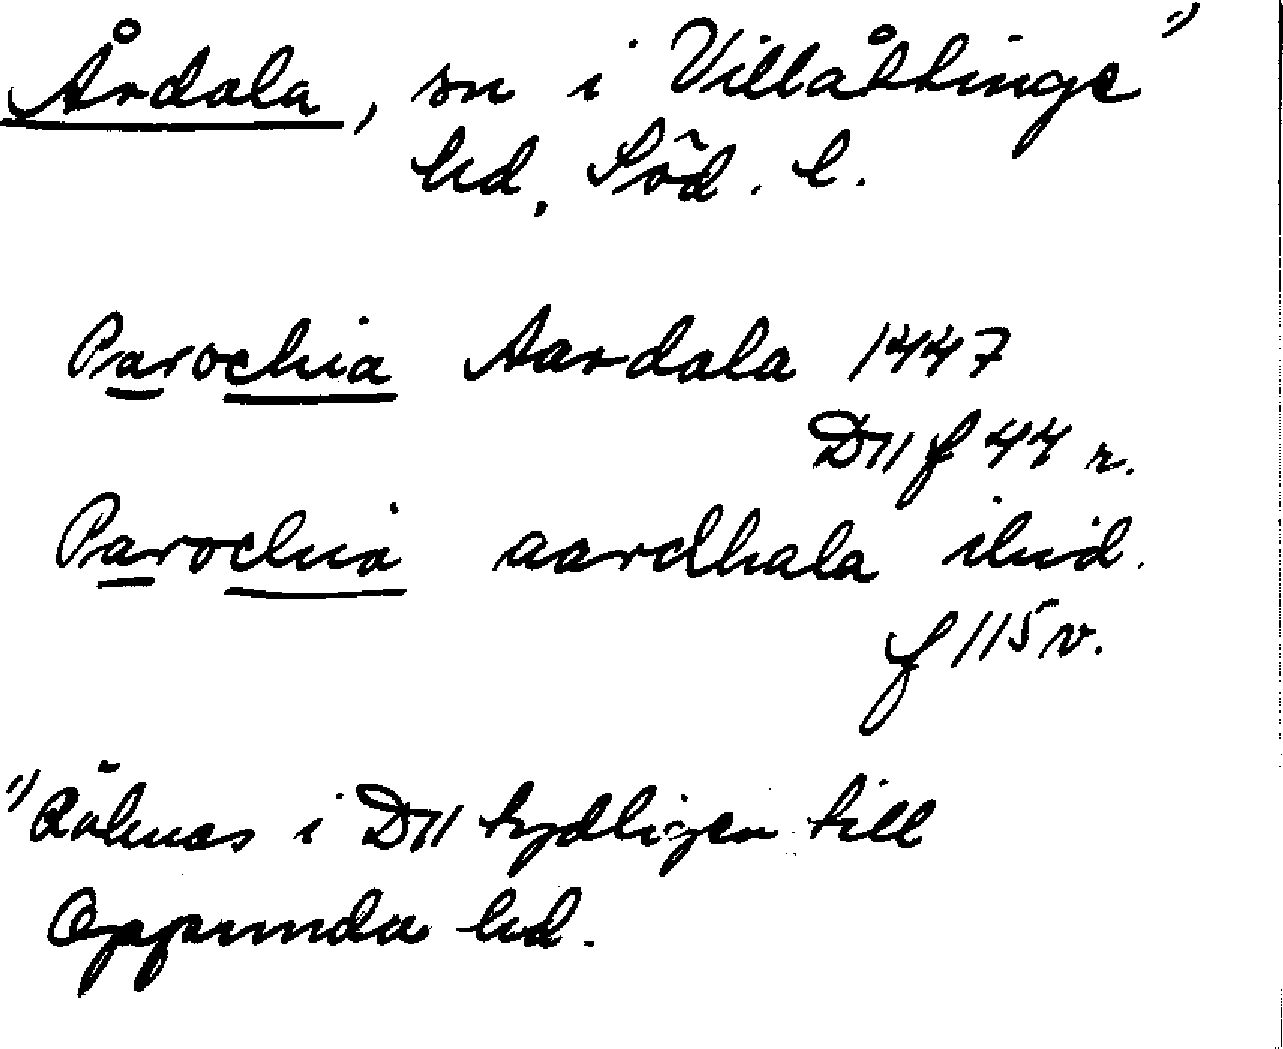 Årdala, sn i Villåttinge 1)
hd, Söd. l.
Parochia Aardala 1447
D11 f 44 r.
Parochia aardhala ibid.
f 115 v.
1) Räknas i D11 tydligen till
Oppunda hd.